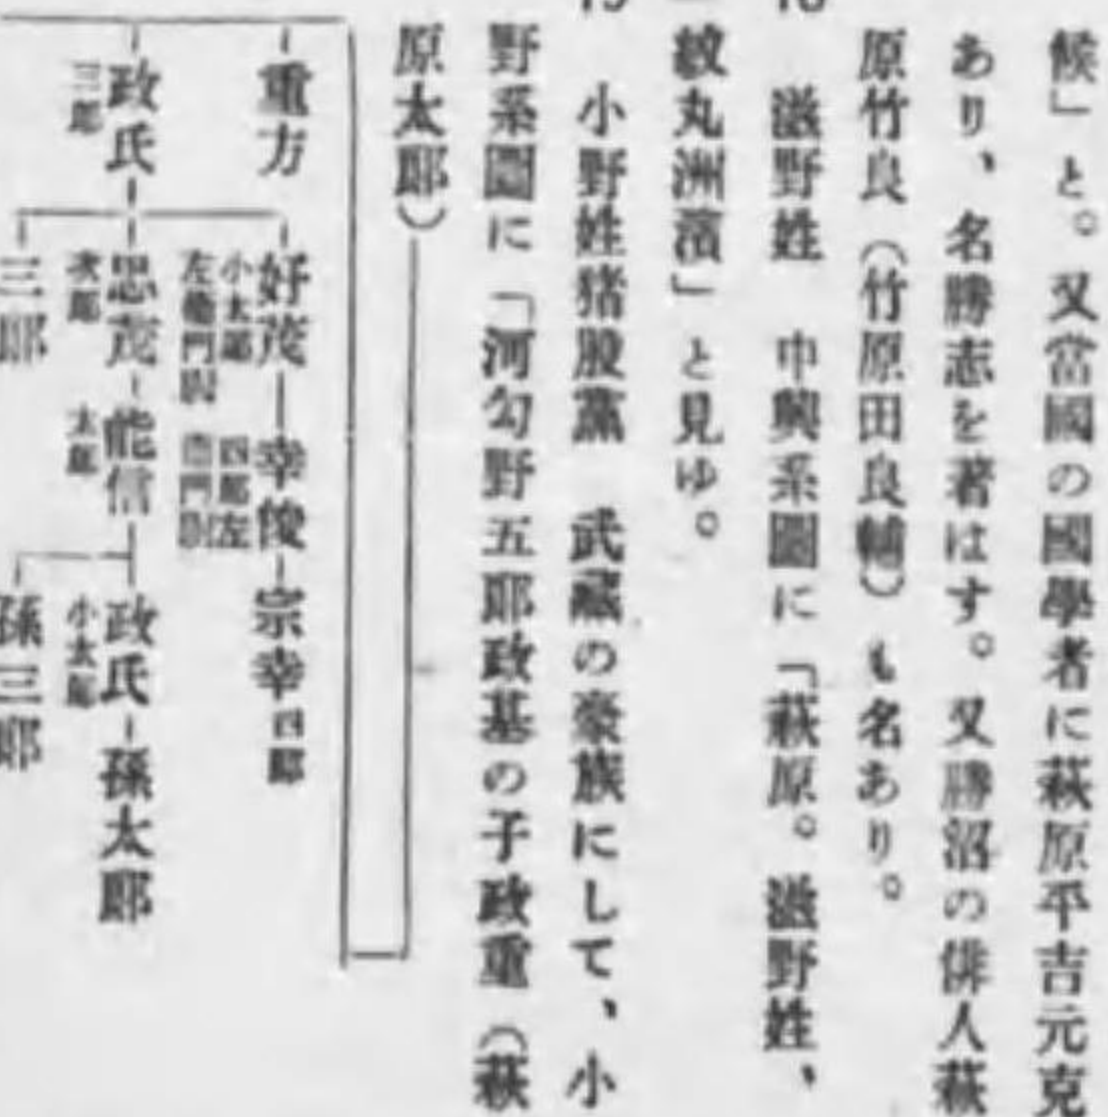 候」と。又當國の國學者に萩原平吉元克
あり、名勝志を著はす。又勝沼の俳人萩
原竹良（竹原田良輔）も名あり。
滋野姓　中興系圖に「萩原。滋野姓、
紋丸洲濱」と見ゆ。
小野姓猪股黨　武藏の豪族にして、小
野系圖に「河勾野五郎政基の子政重（萩
原太郎）
重方
政氏 三郎
好茂 小太郎 左衞門尉
幸俊 四郎左
宗幸 四郎
忠茂 次郎
能信 太郎
政氏 小太郎
孫太郎
三郎
孫三郎